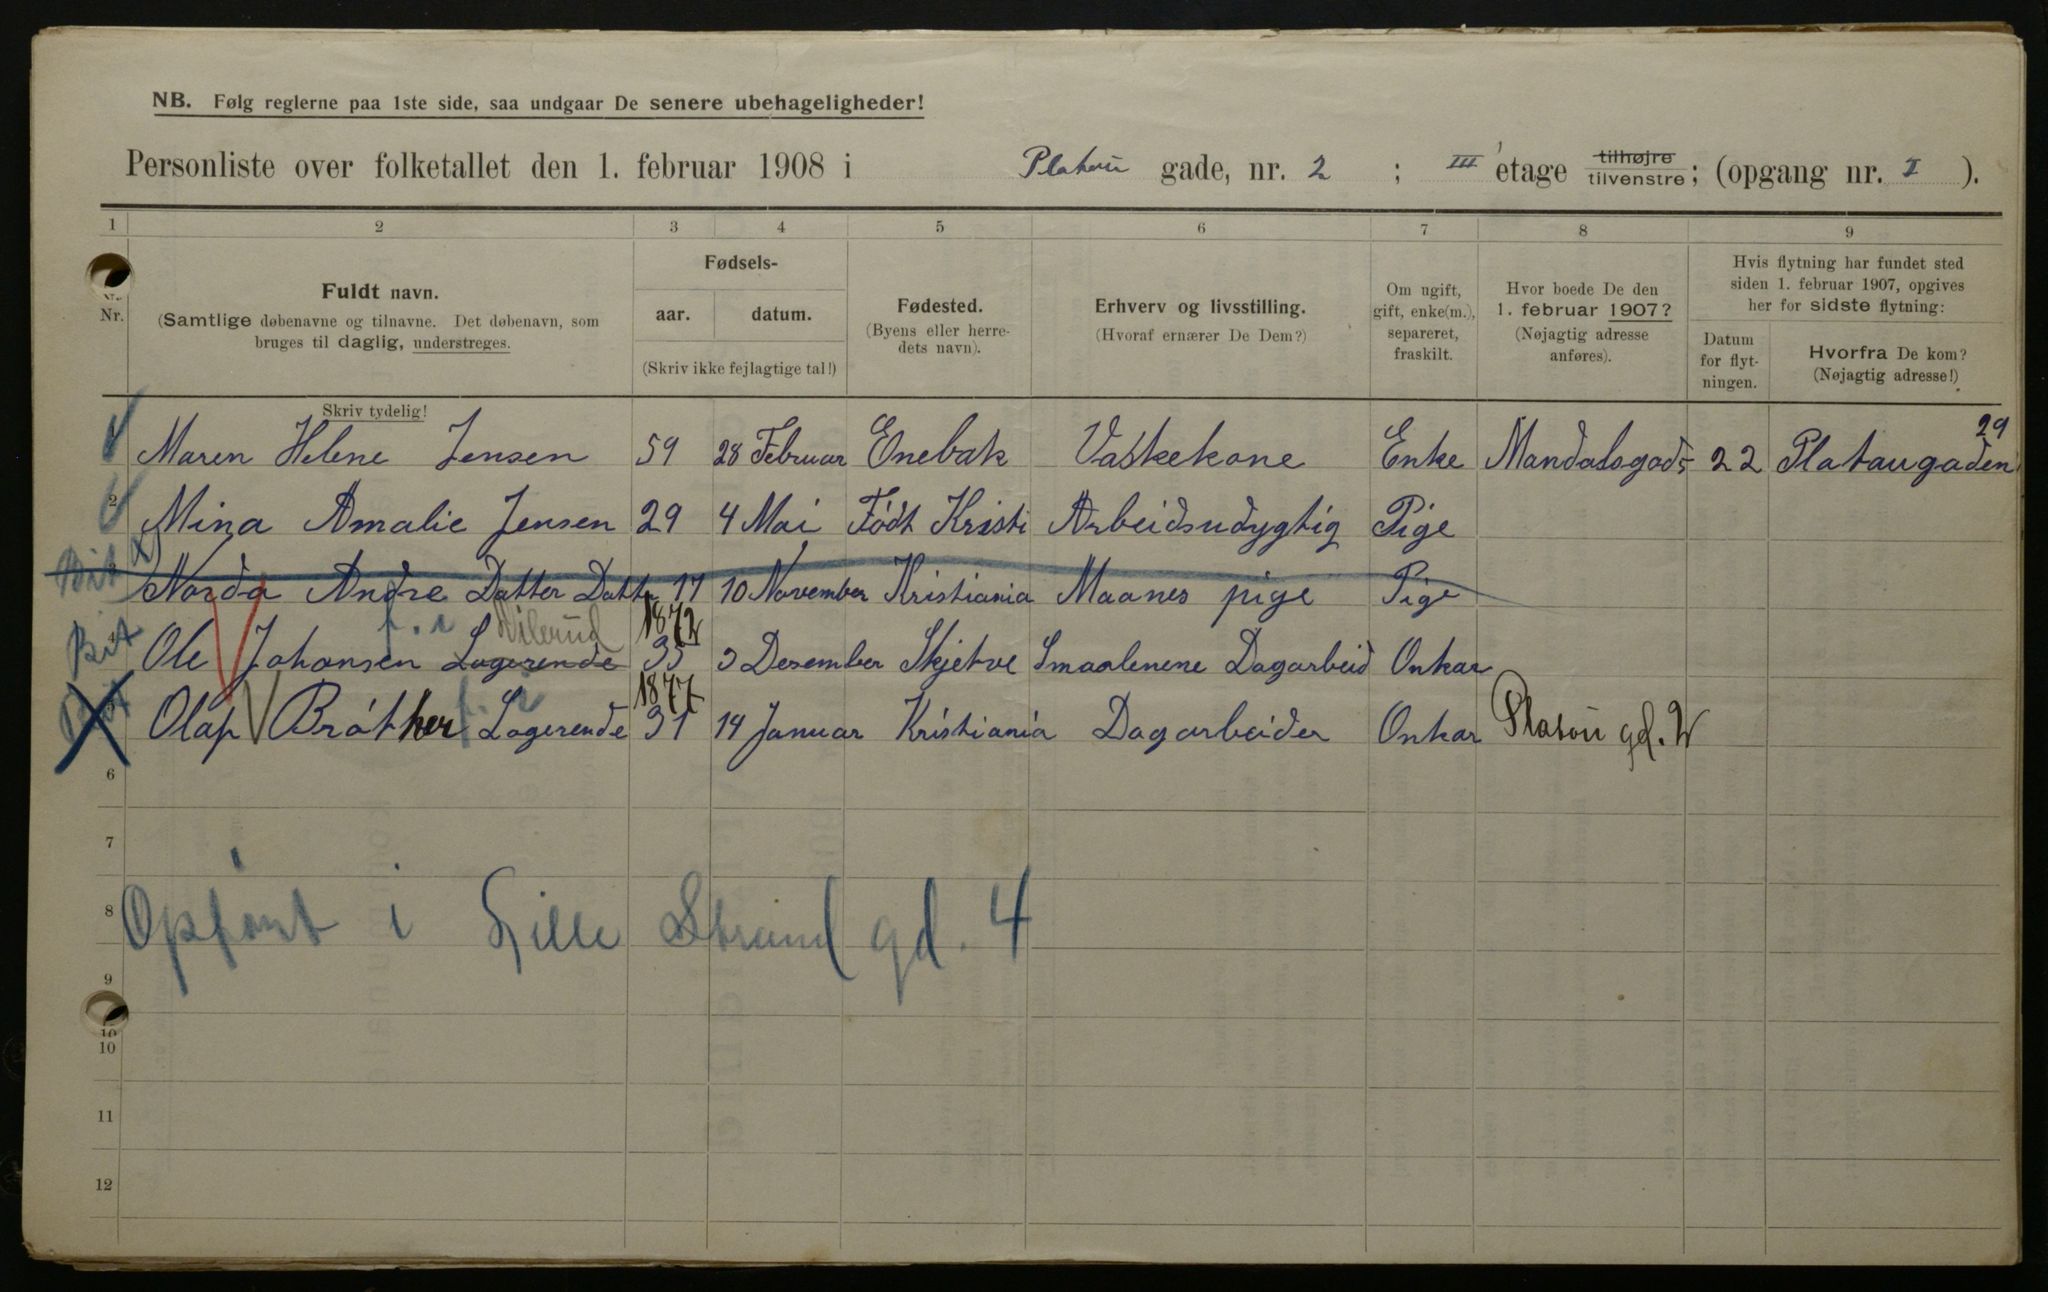 NB. Følg reglerne paa 1ste side, saa undgaar De senere ubehageligheder!
Personliste over folketallet den 1. februar 1908 i Platou gade, nr. 2 ; III etage tilhøjre tilvenstre; (opgang nr. I ).
1 2 3 4 5 6 7 8 9
Nr.
Fuldt navn.
(Samtlige døbenavne og tilnavne. Det døbenavn, som
bruges til daglig, understreges.
Skriv tydelig!
Fødsels-
aar. datum.
(Skriv ikke fejlagtige tal!)
Fødested.
(Byens eller herre-
dets navn).
Erhverv og livsstilling.
(Hvoraf ernærer De Dem?)
Om ugift,
gift, enke(m.),
separeret,
fraskilt.
Hvor boede De den
1. februar 1907?
(Nøjagtig adresse
anføres).
Hvis flytning har fundet sted
siden 1. februar 1907, opgives
her for sidste flytning:
Datum
for flyt-
ningen.
Hvorfra De kom?
(Nøjagtig adresse!)
29
Maren Helene Jensen 59 28 Februar Enebak Vaskekone Enke Mandalsgads 22 Plataugaden
2 Mina Amalie Jensen 29 4 Mai Födt Kristi Arbeidsudygtig Pige
Bit Norda Andre Datter Datter 17 10 November Kristiania Maanes pige Pige
f. i 1872
4 Bit Ole Johansen Logerende 35 3 Desember Skjetve Smaalenene Dagarbeid Onkar
1877
Olaf Bröther Logerende 31 14 Januar Kristiania Dagarbeider Onkar Platou gd. 2
6
7
8 Opført i Lille Strand gd. 4
9
10
10
11
12